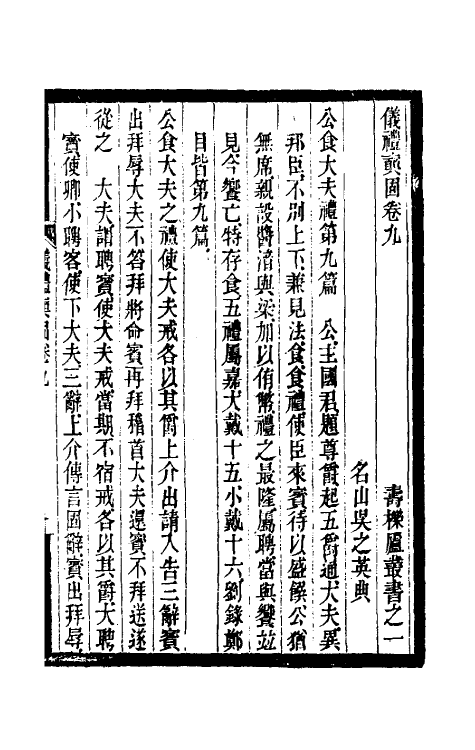 儀禮奭固卷九 壽櫟廬叢書之一
名山吳之英典
公食大夫禮第九篇 公主國君題尊爵起五爵通大夫異
邦臣不別上下兼見法食食禮使臣來賓待以盛饌公猶
無席親設醬湆與梁加以侑幣禮之最隆屬聘當與饗竝
見今饗亡特存食五禮屬嘉大戴十五小戴十六劉錄鄭
目皆第九篇
公食大夫之禮使大夫戒各以其爵上介出請入告三辭賓
出拜辱大夫不答拜將命賓再拜稽首大夫還賓不拜送遂
從之 大夫謂聘賓使大夫戒當期不宿戒各以其爵大聘
賓使卿小聘客使下大夫三辭上介傳言固辭賓出拜辱
儀禮奭固卷九 一